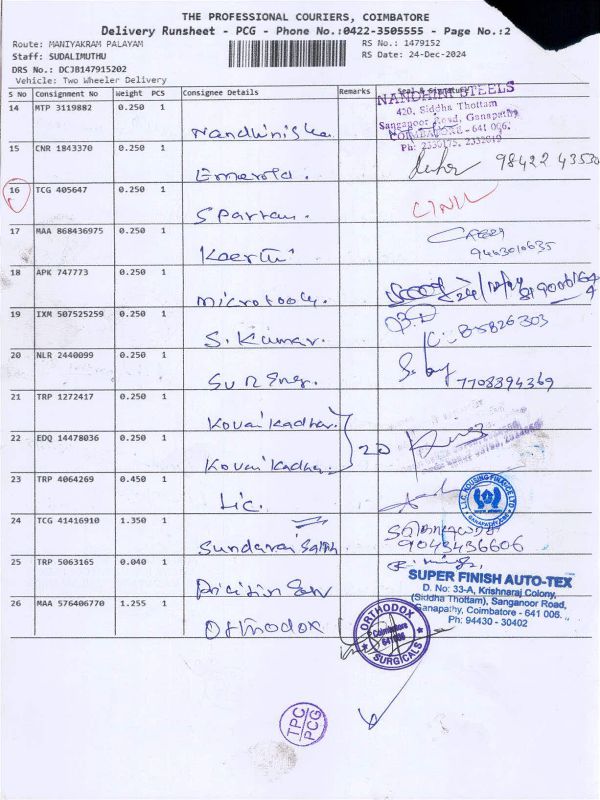 THE PROFESSIONAL COURIERS, COIMBATORE
Delivery Runsheet - PCG - Phone No.:0422-3505555 - Page No.:2
Route: MANIYAKRAM PALAYAM
RS No.: 1479152
Staff: SUDALIMUTHU
RS Date: 24-Dec-2024
DRS No.: DCJB147915202
Vehicle: Two Wheeler Delivery
S No Consignment No Weight PCS Consignee Details Remarks Seal & Signature
14 MTP 3119882 0.250 1
NANDHINI STEELS
420, Siddha Thottam
Sanganoor Road, Ganapathy
COIMBATORE - 641 006.
Ph: 2330175, 2332019
15 CNR 1843370 0.250 1 Emerold. 98422 43530
16 TCG 405647 0.250 1 Sparran.
17 MAA 868436975 0.250 1 Keerthi 9443010635
18 APK 747773 0.250 1 microtools.
19 IXM 507525259 0.250 1 S. Kumar.
20 NLR 2440099 0.250 1 7708394369
21 TRP 1272417 0.250 1 Kovai Kadhar.
22 EDQ 14478036 0.250 1 Kovai Kadhar. 20
23 TRP 4064269 0.450 1 Lic.
L.I.C. HOUSING FINANCE LTD
24 TCG 41416910 1.350 1 9043436606
25 TRP 5063165 0.040 1
SUPER FINISH AUTO-TEX
D. No: 33-A, Krishnaraj Colony,
(Siddha Thottam), Sanganoor Road,
Ganapathy, Coimbatore - 641 006.
Ph: 94430 - 30402
26 MAA 576406770 1.255 1 Orthodox
ORTHODOX
Coimbatore
641 006
SURGICALS
TPC
PCG